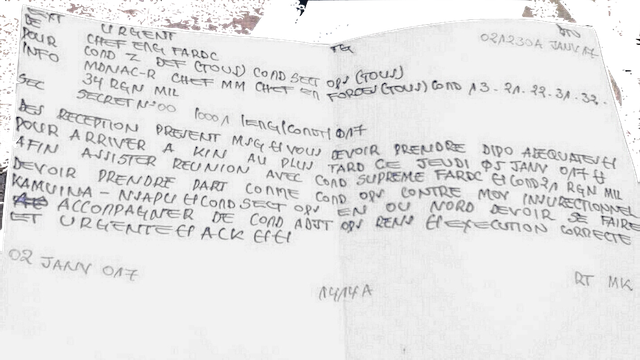 EXT URGENT TG 021230A JANV 17
DE CHEF ENG FARDC
POUR COND Z DEF (TOUS) COND SECT OPS (TOUS)
INFO MDNAC-R CHEF MM CHEF EM FORCES (TOUS) COND 13.21.22.31.32.
34 RGN MIL
SEC SECRET N°00 1000/1 /ENG/CONDT/ 017
DES RECEPTION PRESENT MSG STI VOUS DEVOIR PRENDRE DIPO ADEQUATE STI
POUR ARRIVER A KIN AU PLUS TARD CE JEUDI 05 JANV 017 STI
AFIN ASSISTER REUNION AVEC COND SUPREME FARDC STI COND 21 RGN MIL
DEVOIR PRENDRE PART COMME COND OPS CONTRE MOV INSURECTIONNEL
KAMUINA - NSAPU STI COND SECT OPS EN OU NORD DEVOIR SE FAIRE
ACCOMPAGNER DE COND ADJT OPS RENS STI EXECUTION CORRECTE
ET URGENTE STI ACK STI STI
02 JANV 017 1414A RT MK